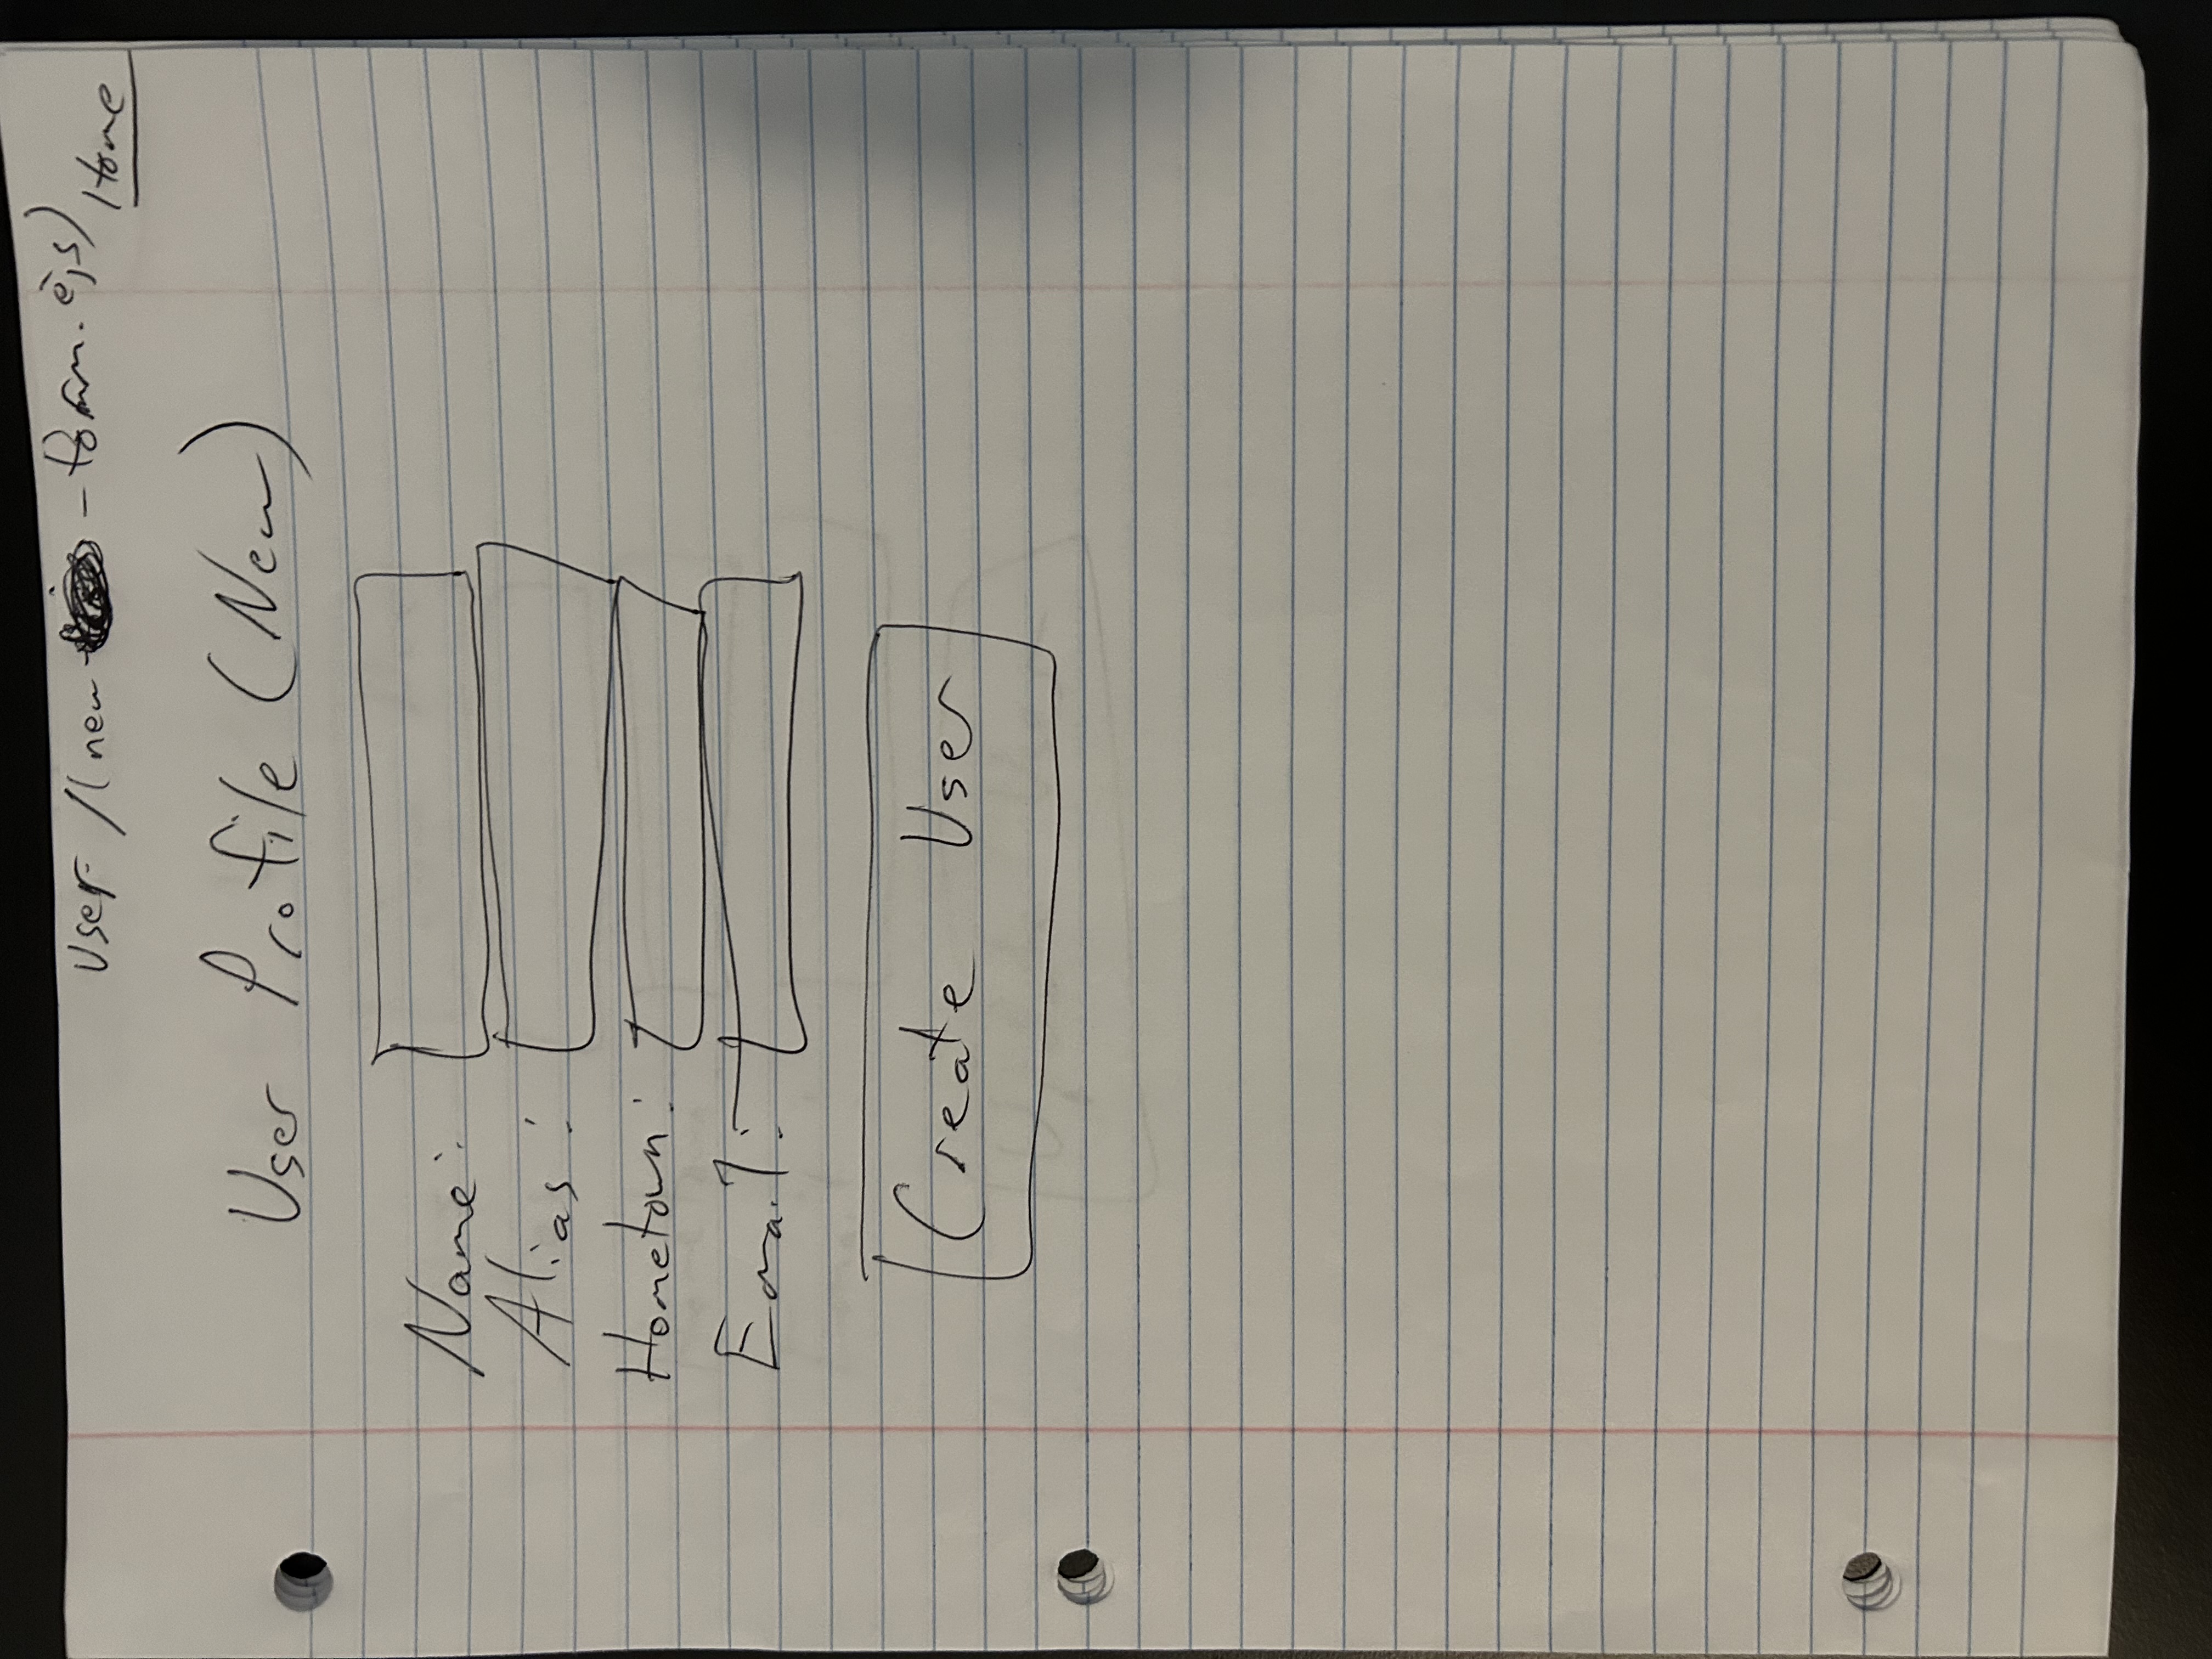 User /(new - form.ejs)
Home
User Profile (New)
Name:
Alias:
Hometown:
Email:
Create User